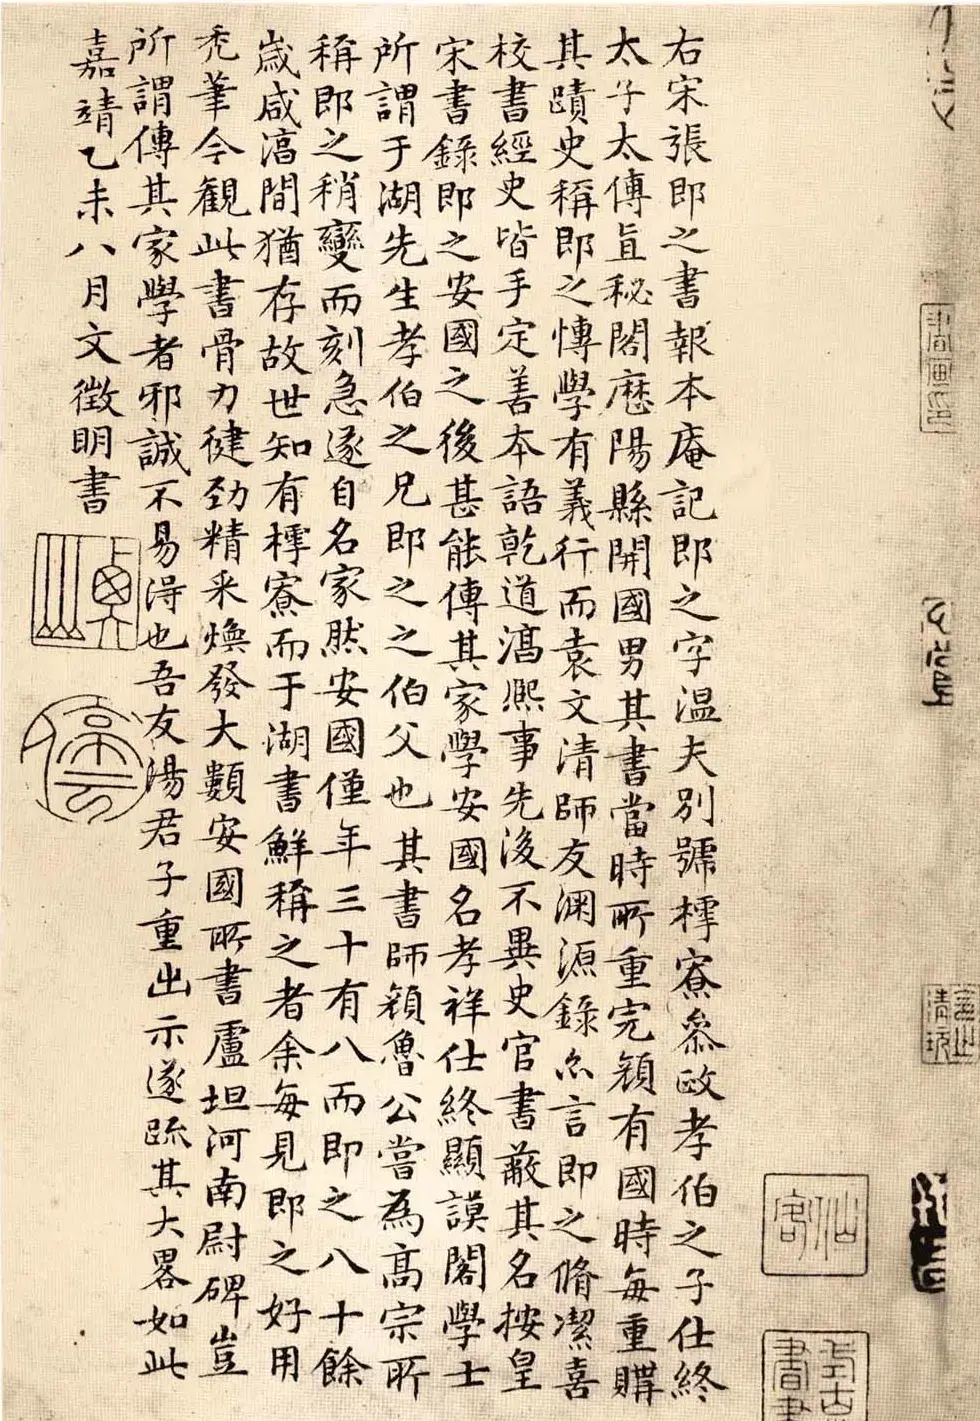 右宋張即之書報本庵記即之字温夫別號樗寮叅政孝伯之子仕終
太子太傅直秘閣歷陽縣開國男其書當時所重完顔有國時每重購
其蹟史稱即之博學有義行而袁文清師友渊源錄亦言即之脩潔喜
校書經史皆手定善本語乾道淳熙事先後不異史官書蔽其名按皇
宋書錄即之安國之後甚能傳其家學安國名孝祥仕終顯謨閣學士
所謂于湖先生孝伯之兄即之之伯父也其書師顔魯公嘗為高宗所
稱即之稍變而刻急遂自名家然安國僅年三十有八而即之八十餘
歲咸淳間猶存故世知有樗寮而于湖書鮮稱之者余每見即之好用
禿筆今觀此書骨力健勁精采煥發大類安國所書盧坦河南尉碑豈
所謂傳其家學者邪誠不易得也吾友湯君子重出示遂疏其大畧如此
嘉靖乙未八月文徵明書